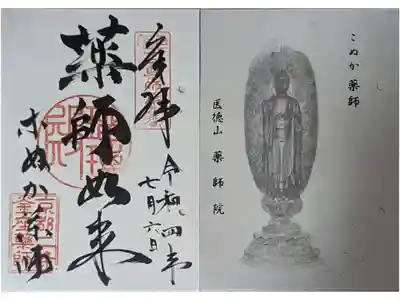 奉拝
令和四年
七月六日
薬師如来
こぬか薬師
こぬか薬師
医徳山 薬師院